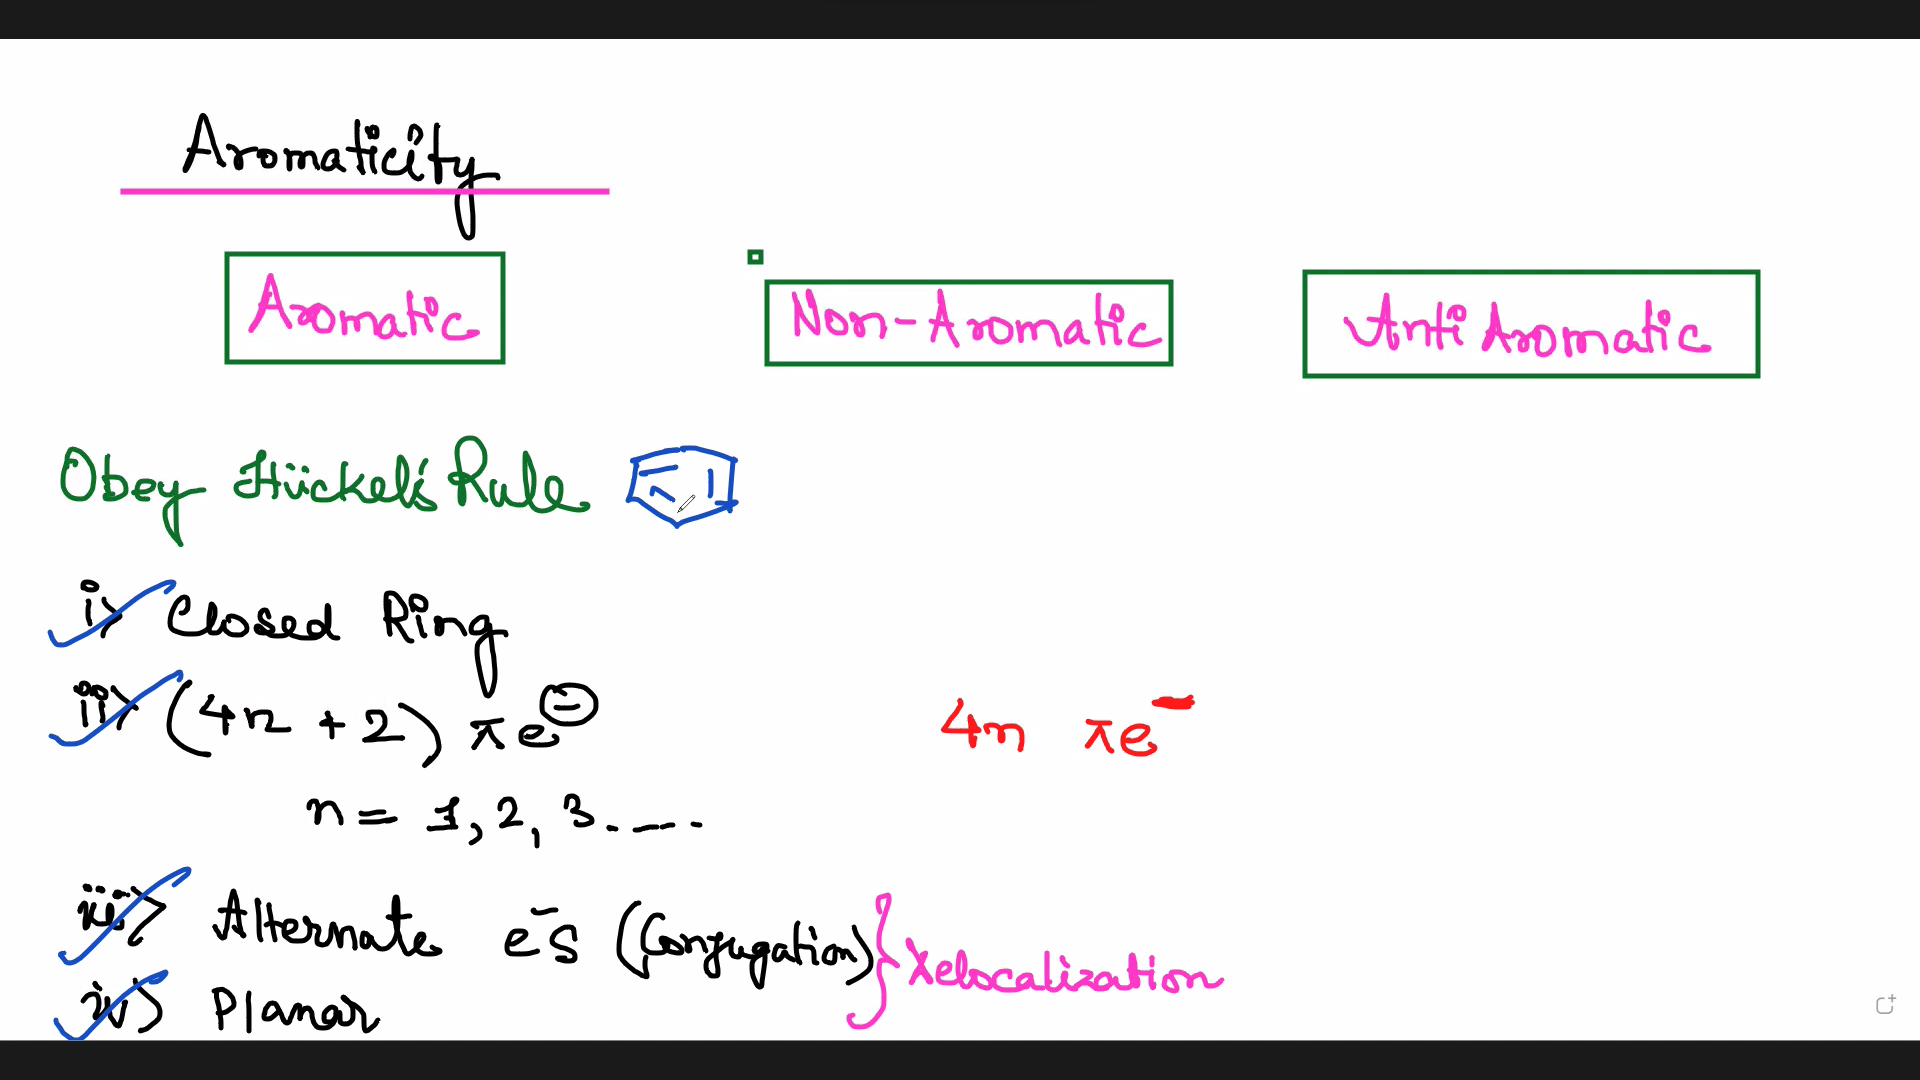 Aromaticity
Aromatic
Non-Aromatic
Anti Aromatic
Obey Hückel's Rule
i) Closed Ring
ii) (4n + 2) πe⊖
4n πe⁻
n = 1, 2, 3. ....
iii) Alternate e⁻s (Conjugation)
iv) Planar